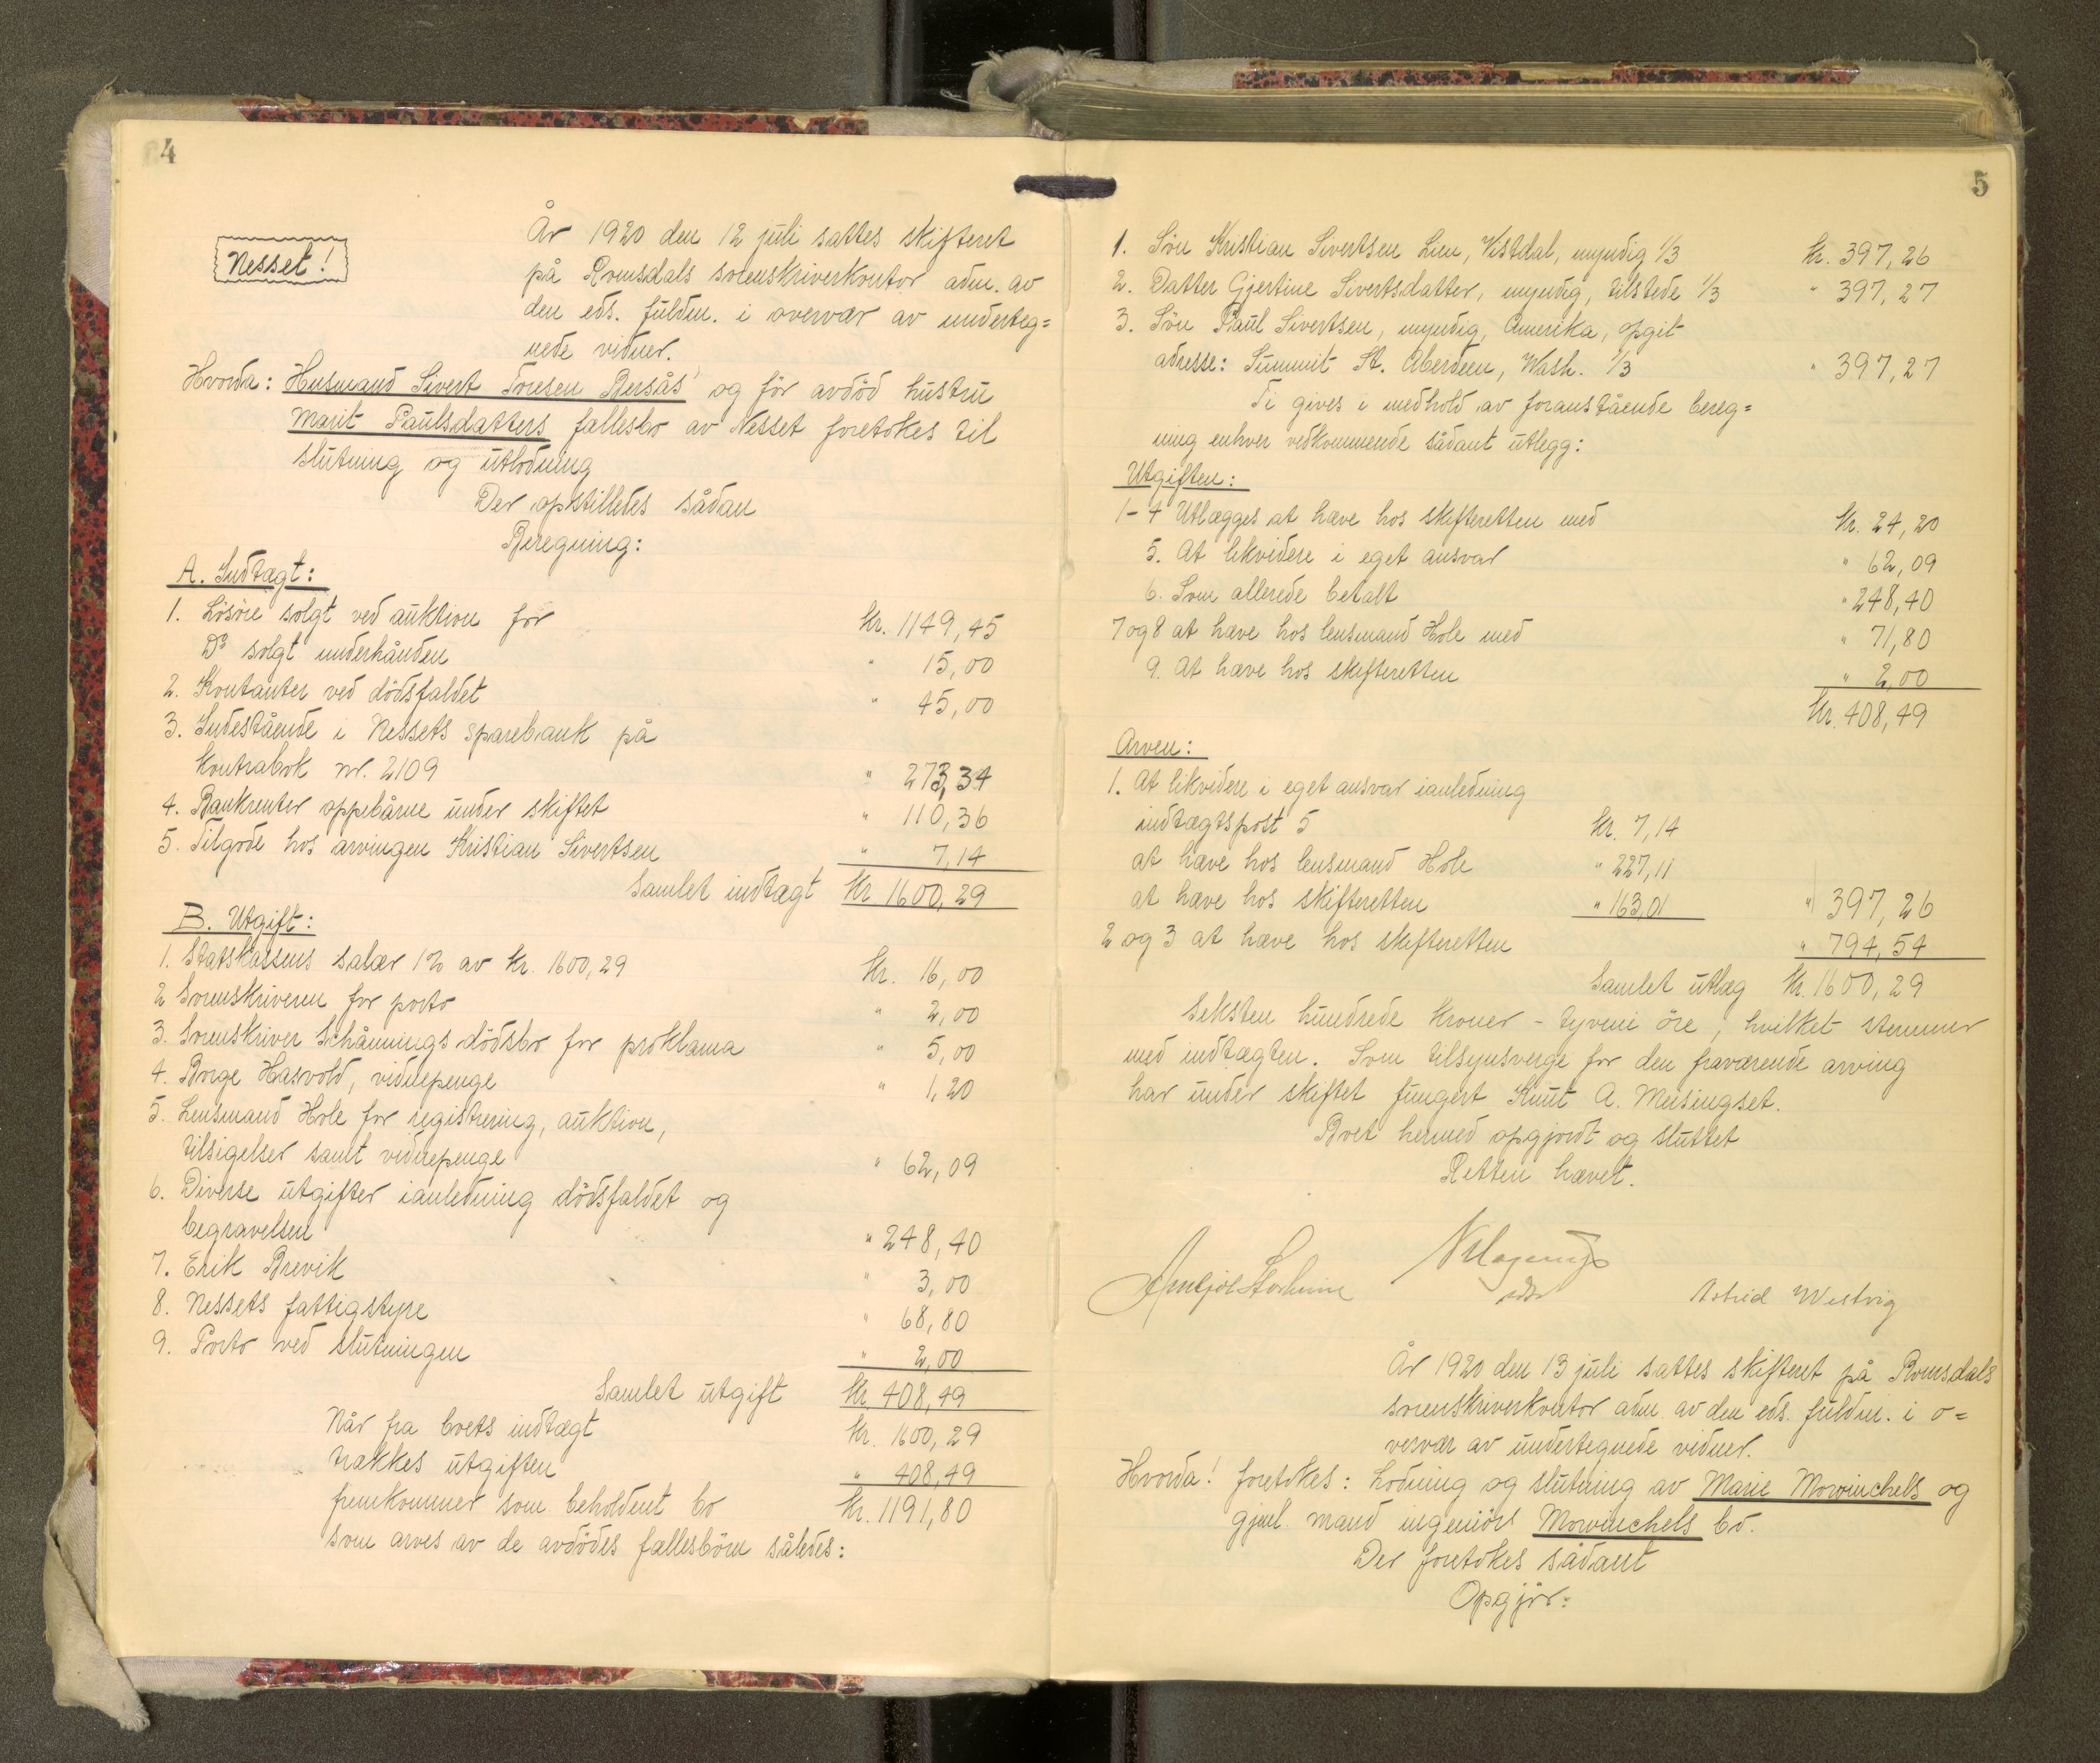 4
Nesset!
År 1920 den 12 juli sattes skifteret
på Romsdals sorenskriverkontor adm. av
den eds. fuldm. i overvær av underteg=
nede vidner.
Hvorda: Husmand Sivert Toresen Bersås' og før avdød hustru
Marit Paulsdatters fællesbo av Nesset foretokes til
slutning og utlodning
Der opstilledes sådan
Beregning:
A. Indtægt:
1. Løsøre solgt ved auktion for kr. 1149,45
Do solgt underhånden " 15,00
2. Kontanter ved dødsfaldet " 45,00
3. Indestående i Nessets sparebank på
kontrabok nr. 2109 " 273,34
4. Bankrenter oppebårne under skiftet " 110,36
5. Tilgode hos arvingen Kristian Sivertsen " 7,14
Samlet indtægt kr. 1600,29
B. Utgift:
1. Statskassens salær 1% av kr. 1600,29 kr. 16,00
2 Sorenskriveren for porto " 2,00
3. Sorenskriver Schånnings dødsbo for proklama " 5,00
4. Borge Hasvold, vidnepenge " 1,20
5. Lensmand Hole for registrering, auktion,
tilsigelser samt vidnepenge " 62,09
6. Diverse utgifter ianledning dødsfaldet og
begravelsen " 248,40
7. Erik Brevik " 3,00
8. Nessets fattigstyre " 68,80
9. Porto ved slutningen " 2,00
Samlet utgift kr. 408,49
Når fra boets indtægt kr. 1600,29
trækkes utgiften " 408,49
fremkommer som beholdent bo kr. 1191,80
som arves av de avdødes fællesbørn således:
5
1. Søn Kristian Sivertsen Lien, Vistdal, myndig 1/3 kr. 397,26
2. Datter Gjertine Sivertsdatter, myndig, tilstede 1/3 " 397,27
3. Søn Paul Sivertsen, myndig, Amerika, opgit
adresse: Summit St. Aberdeen, Wash. 1/3 " 397,27
Ti gives i medhold av foranstående bereg=
ning enhver vedkommende sådant utlegg:
Utgiften:
1-4 Utlægges at hæve hos skifteretten med kr. 24,20
5. At likvidere i eget ansvar " 62,09
6. Som allerede betalt " 248,40
7 og 8 at hæve hos lensmand Hole med " 71,80
9. At hæve hos skifteretten " 2,00
kr. 408,49
Arven:
1. At likvidere i eget ansvar ianledning
indtægtspost 5 kr. 7,14
at hæve hos lensmand Hole " 227,11
at hæve hos skifteretten " 163,01 " 397,26
2 og 3 at hæve hos skifteretten " 794,54
Samlet utlæg kr. 1600,29
Seksten hundrede kroner - tyveni øre, hvilket stemmer
med indtægten. Som tilsynsverge for den fraværende arving
har under skiftet fungert Knut A. Meisingset.
Boet hermed opgjordt og sluttet
Retten hævet.
Astrid Westvig
År 1920 den 13 juli sattes skifteret på Romsdals
sorenskriverkontor adm. av den eds. fuldm. i o=
vervær av undertegnede vidner.
Hvorda! foretokes: Lodning og slutning av Marie Mowinckels og
gjenl. mand ingeniør Mowinckels bo.
Der foretokes sådant
Opgjør: